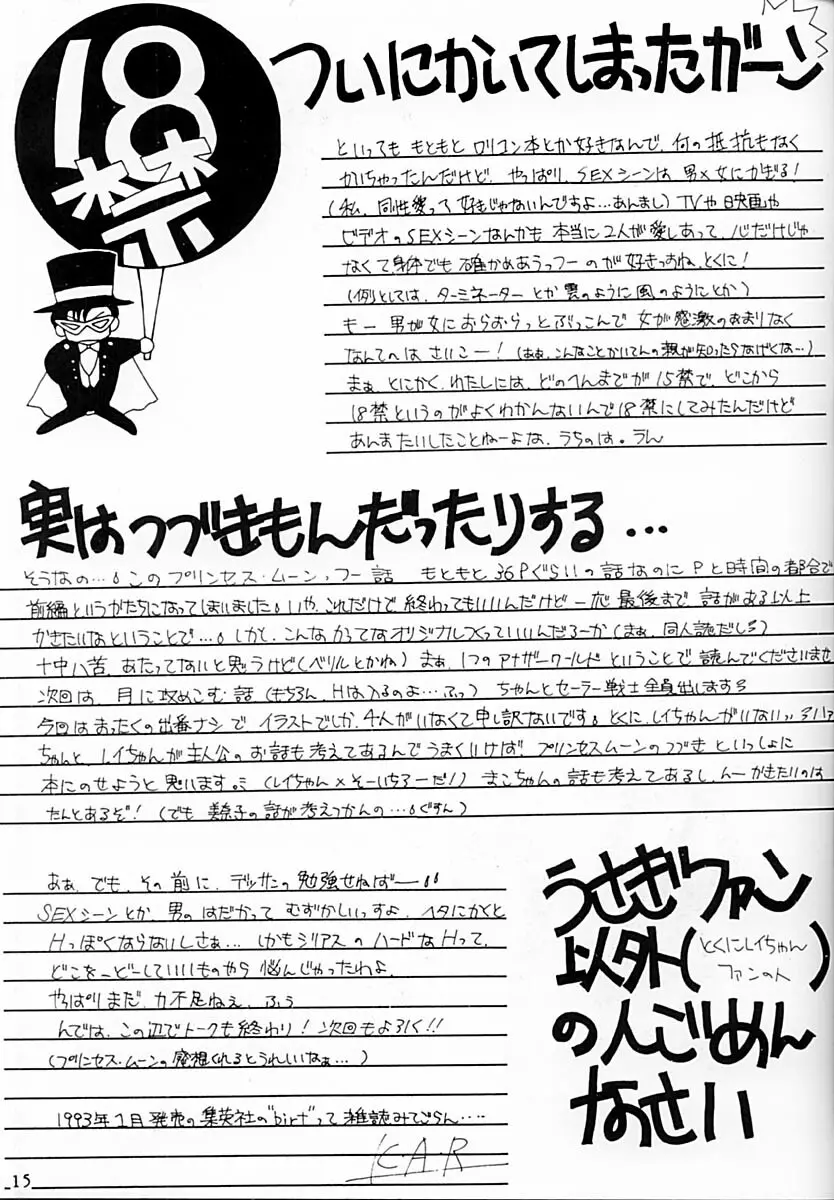 18禁
ついにかいてしまったガーン
といっても もともと ロリコン本とか好きなんで、何の抵抗もなく
かいちゃったんだけど、やっぱり、SEXシーンは 男×女にかぎる!
(私、同性愛って 好きじゃないんですよ…あんまし) TVや映画や
ビデオのSEXシーンなんかも 本当に2人が愛しあって、心だけじゃ
なくて身体でも 確かめあうっつーのが好きっすね、とくに!
(例としては、ターミネーターとか 雲のように風のようにとか)
もー 男が女におらおらっとぶっこんで 女が感激のあまりなく
なんてのは さいこー!(あぁ、こんなことかいてんの親が知ったらなげくな…)
まぁ、とにかく、わたしには、どのへんまでが15禁で、どこから
18禁というのがよくわかんないんで18禁にしてみたんだけど
あんまたいしたことねーよな、うちのは。うん
実はつづきもんだったりする…
そうなの…。このプリンセス・ムーンっつー話 もともと36Pぐらいの話なのにPと時間の都合で
前編というかたちになってしまいました。いや、これだけで終わってもいいんだけど一応最後まで話がある以上
かきたいなということで…。しかし、こんなかってなオリジナルつくっていいんだろーか(まぁ、同人誌だしさ)
十中八苦、あたってないと思うけど(ベリルとかね)まぁ、1つのアナザーワールドということで読んでくださいませ
次回は、月に攻めこむ話(もちろん、Hは入るのよ…ふっ) ちゃんとセーラー戦士全員出します
今回はまったくの出番ナシで イラストでしか、4人がいなくて申し訳ないです。とくに、レイちゃんがいない
ちゃんと、レイちゃんが主人公のお話も考えてあるんでうまくいけば、プリンセスムーンのつづきといっしょに
本にのせようと思います。(レイちゃん×そーいちろーだ!) まこちゃんの話も考えてあるし、んーかきたいのは
たんとあるぞ!(でも 美奈子の話が考えつかんの…。ぐすん)
あぁ、でも、その前に、デッサンの勉強せねばー
SEXシーンとか、男のはだかって むずかしいっすよ、ヘタにかくと
Hっぽくならないしさぁ… しかもシリアスのハードなHって、
どこをーどーしていいものやら 悩んじゃったわよ、
やっぱりまだ、力不足ねぇ、ふぅ
んでは、この辺でトークも終わり!次回もよろしく!!
(プリンセス・ムーンの感想くれるとうれしいなぁ…)
1993年1月発売の集英社の"birt"って雑誌みてごらん‥‥
K.A.R
うさぎファン
以外(とくにレイちゃんファンの人)
の人ごめん
なさい
15